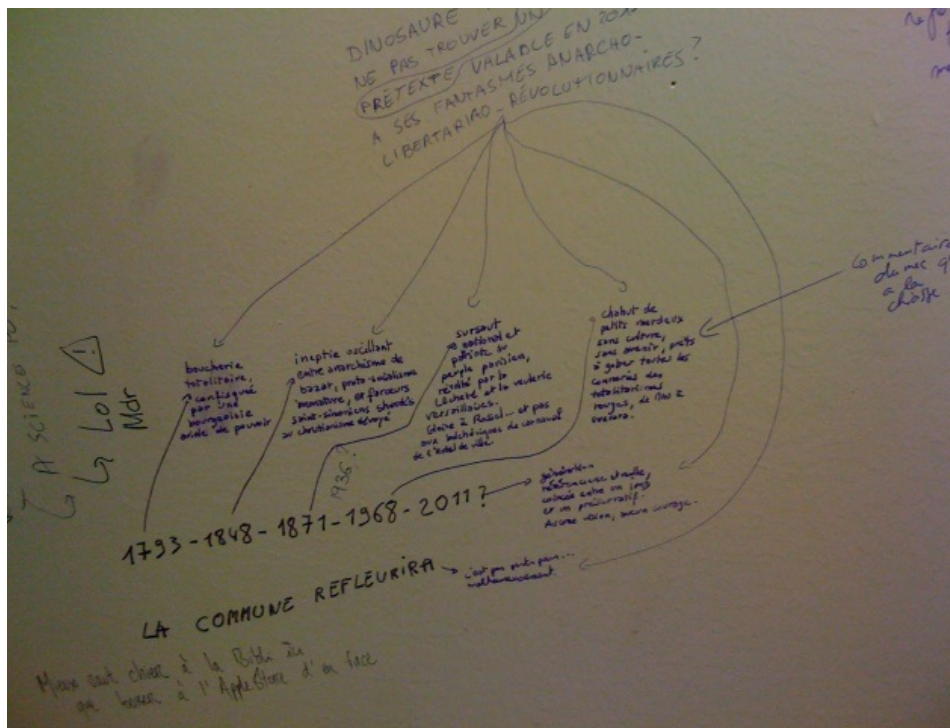 DINOSAURE
NE PAS TROUVER UN
PRÉTEXTE VALABLE EN
A SES FANTASMES ANARCHO-
LIBERTARIAO-RÉVOLUTIONNAIRES?
Commentaire
du mec
a la
chiasse
boucherie
totalitaire,
confisquée
par une
bourgeoisie
avide de pouvoir
ineptie oscillant
entre anarchisme de
bazar, proto-socialisme
immature, et farceurs
saint-simoniens shootés
au christianisme dévoyé
sursaut
national et
patriote du
peuple parisien,
révolté par la
lâcheté et la veulerie
versaillaises.
Gloire à Rossel... et pas
aux bolchéviques de carnaval
de l'hôtel de ville
chahut de
petits merdeux
sans culture,
sans avenir, prêts
à gober toutes les
conneries des
totalitarismes
rouges, de Mao à
A SCIENCE PO,
Lol
Mdr
1936?
1793-1848-1871-1968-2011?
génération
et molle,
coincée entre un
et un préservatif.
Aucune vision, aucun courage.
LA COMMUNE REFLEURIRA
c'est pas parti pour...
malheureusement.
Mieux vaut chier à la Bibli
que baiser à l'Apple Store d'en face